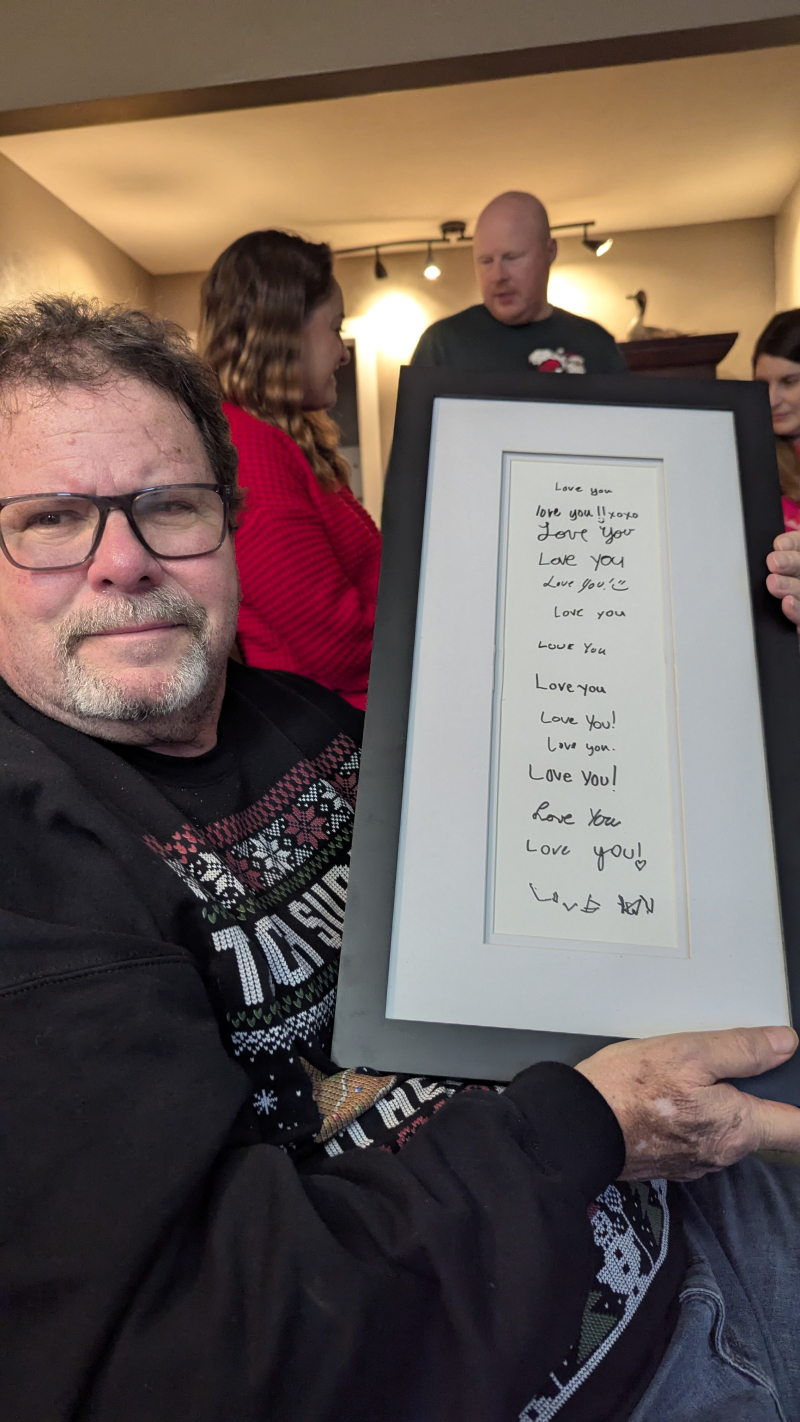 Love you
love you!! xoxo
Love You
Love you
Love you!
Love you
Love You
Love you
Love You!
Love you.
Love You!
Love You
Love you!♡
LOVE